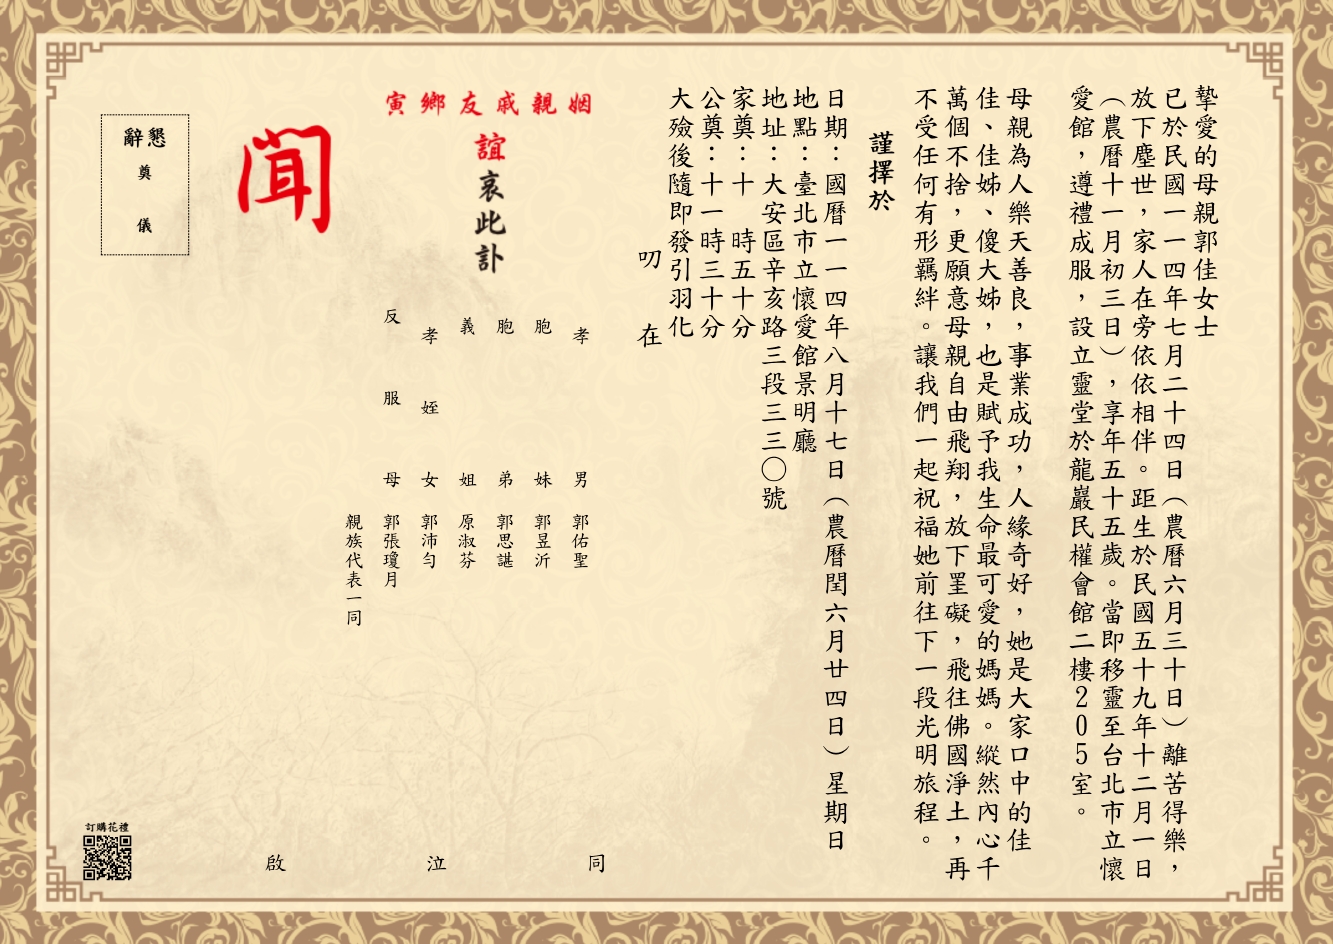 摯愛的母親郭佳女士
已於民國一一四年七月二十四日（農曆六月三十日）離苦得樂，
放下塵世，家人在旁依依相伴。距生於民國五十九年十二月一日
（農曆十一月初三日），享年五十五歲。當即移靈至台北市立懷
愛館，遵禮成服，設立靈堂於龍巖民權會館二樓205室。
母親為人樂天善良，事業成功，人緣奇好，她是大家口中的佳
佳、佳姊、傻大姊，也是賦予我生命最可愛的媽媽。縱然內心千
萬個不捨，更願意母親自由飛翔，放下罣礙，飛往佛國淨土，再
不受任何有形羈絆。讓我們一起祝福她前往下一段光明旅程。
謹擇於
日期：國曆一一四年八月十七日（農曆閏六月廿四日）星期日
地點：臺北市立懷愛館景明廳
地址：大安區辛亥路三段三三〇號
家奠：十 時五十分
公奠：十一時三十分
大殮後隨即發引羽化
叨 在
姻親戚友鄉寅
誼哀此訃
聞
孝 男 郭佑聖
胞 妹 郭昱沂
胞 弟 郭思諶
義 姐 原淑芬
孝 姪 女 郭沛勻
反 服 母 郭張瓊月
親族代表一同
同 泣 啟
懇辭
奠 儀
訂購花禮